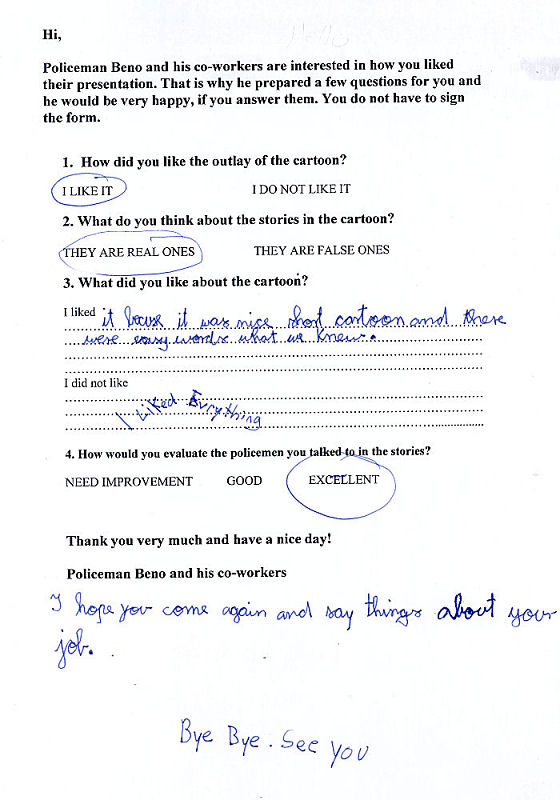 Hi,
Policeman Beno and his co-workers are interested in how you liked
their presentation. That is why he prepared a few questions for you and
he would be very happy, if you answer them. You do not have to sign
the form.
1. How did you like the outlay of the cartoon?
I LIKE IT I DO NOT LIKE IT
2. What do you think about the stories in the cartoon?
THEY ARE REAL ONES THEY ARE FALSE ONES
3. What did you like about the cartoon?
I liked it becuse it was nice short cartoon and there
were easy words what we knew.
I did not like
I Liked Evrything
4. How would you evaluate the policemen you talked to in the stories?
NEED IMPROVEMENT GOOD EXCELLENT
Thank you very much and have a nice day!
Policeman Beno and his co-workers
I hope you come again and say things about your
job.
Bye Bye. See you